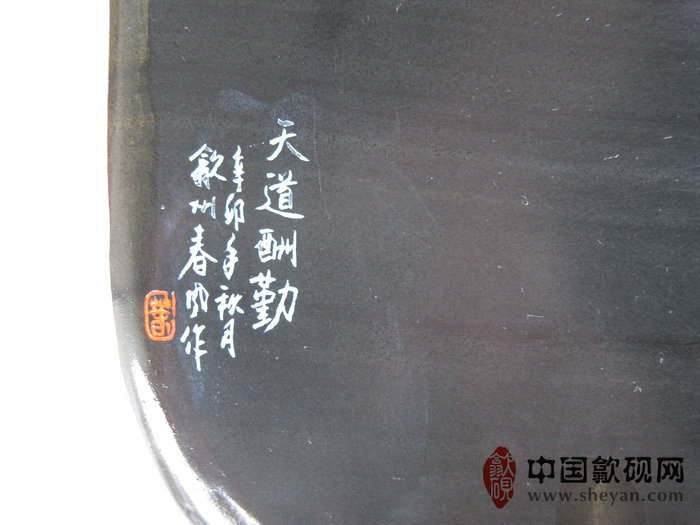 天道酬勤
辛卯年秋月
歙州春风作
中国歙砚网
www.sheyan.com